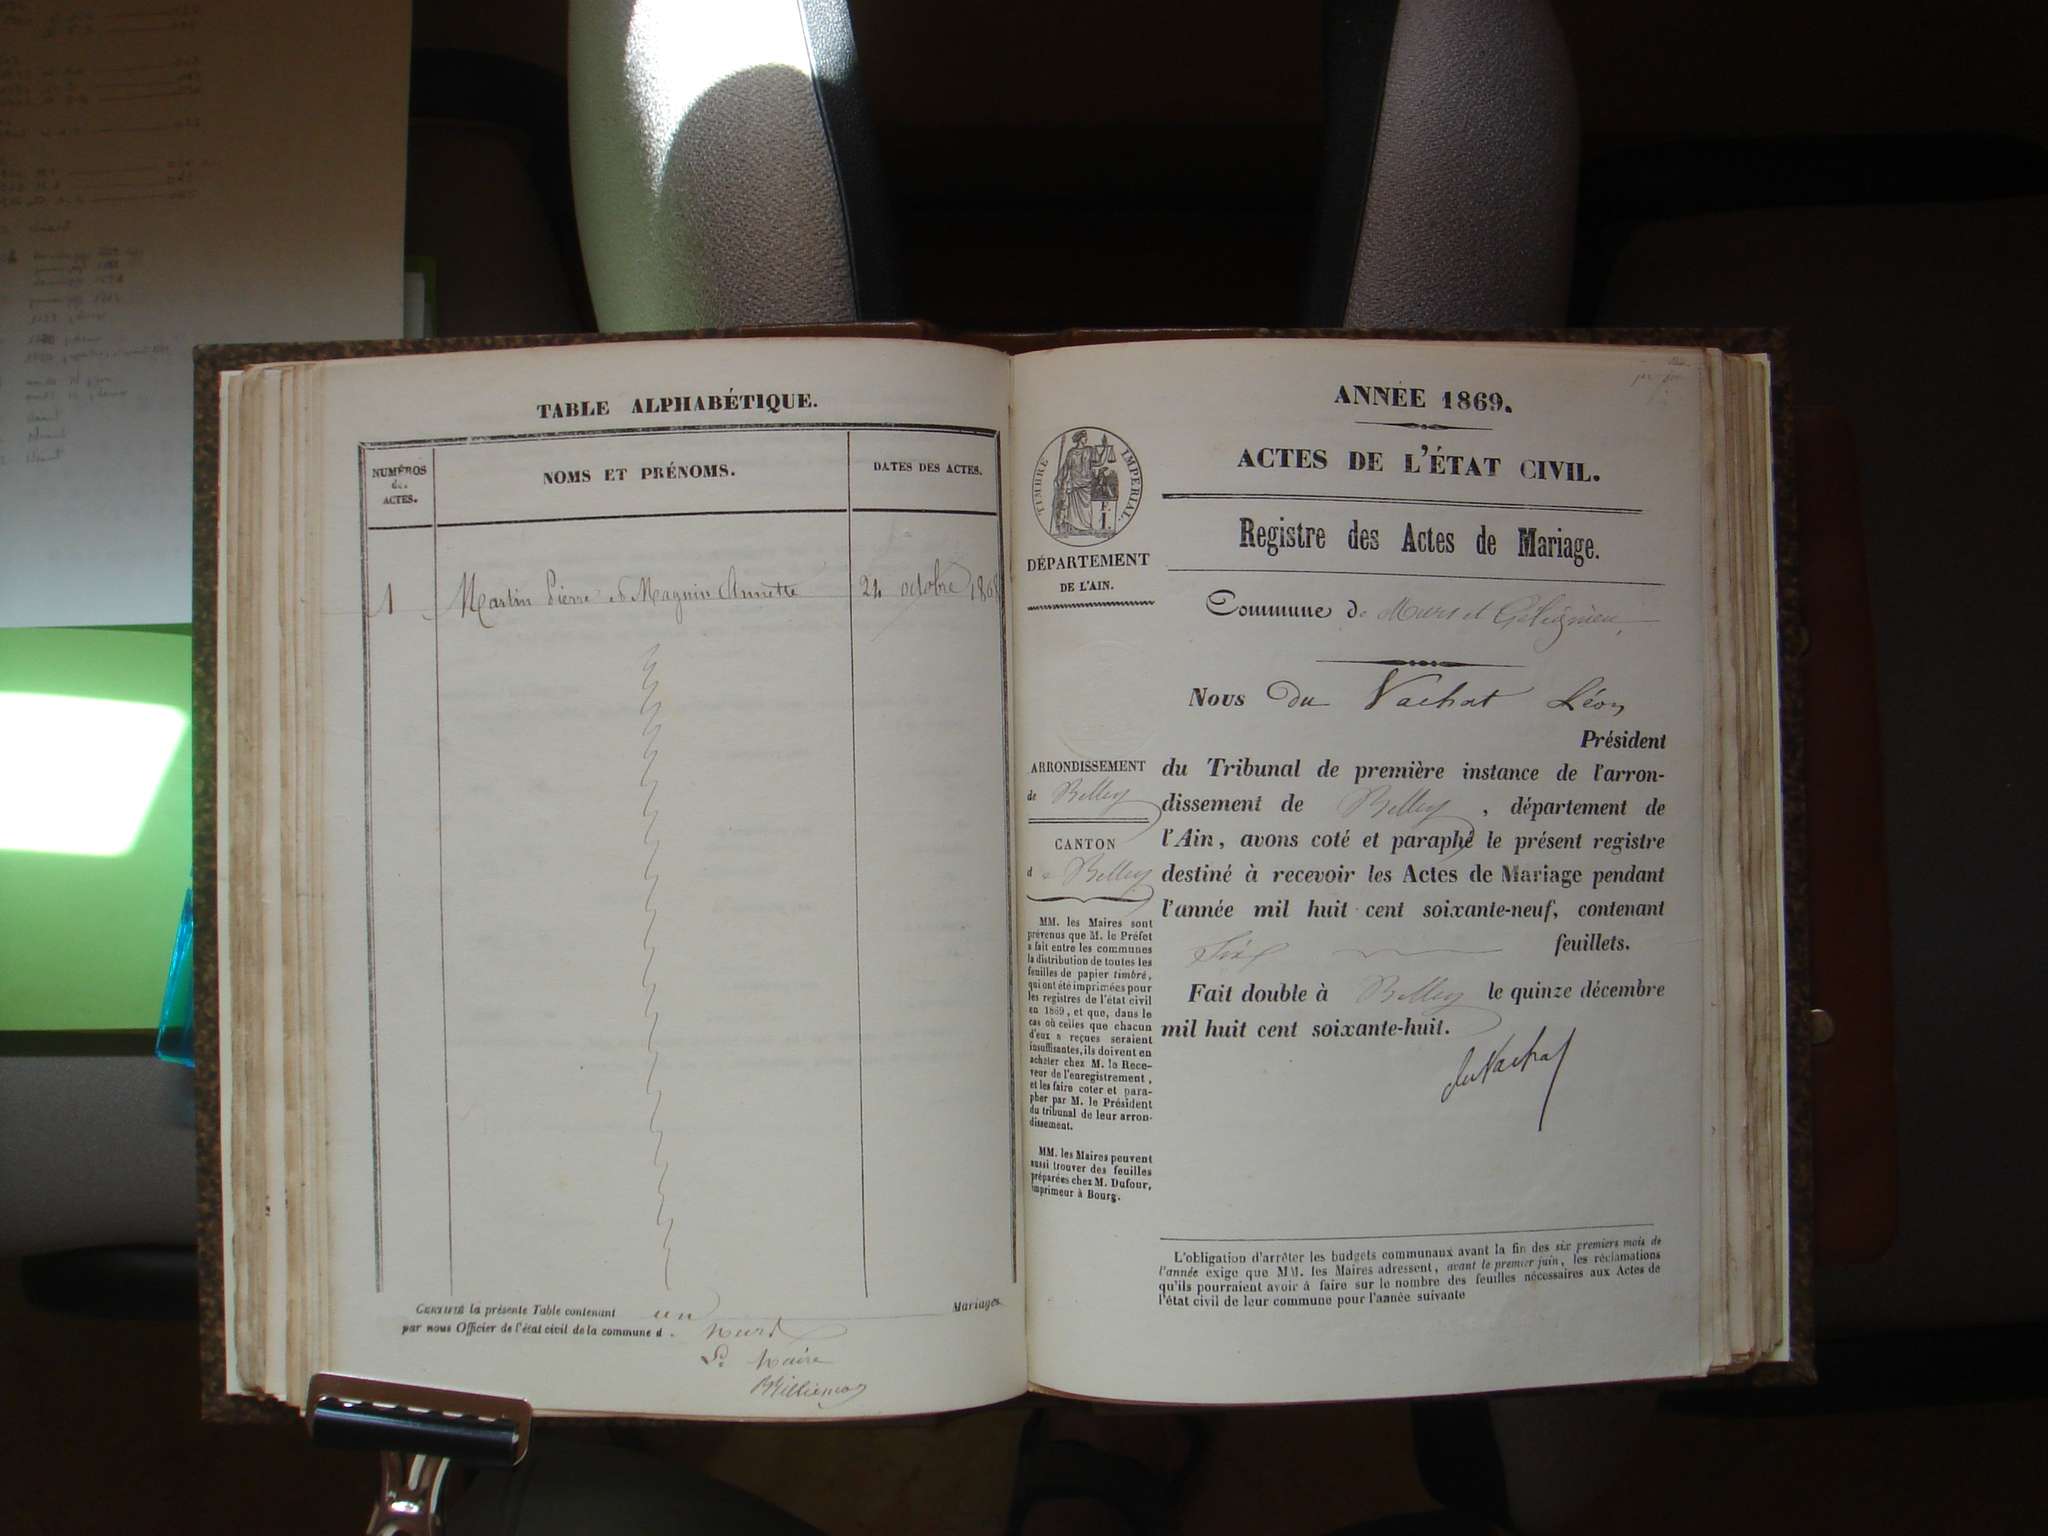 TABLE ALPHABÉTIQUE.
NUMÉROS
des
ACTES.
NOMS ET PRÉNOMS.
DATES DES ACTES.
1 Martin Pierre et Magnin Annette 24 octobre 1868
CERTIFIÉ la présente Table contenant un Mariages
par nous Officier de l'état civil de la commune d. Murs
Le Maire
ANNÉE 1869.
ACTES DE L'ÉTAT CIVIL.
Registre des Actes de Mariage.
Commune de Murs et Gélignieu
TIMBRE IMPÉRIAL.
DÉPARTEMENT
DE L'AIN.
ARRONDISSEMENT
de Belley
CANTON
de Belley
MM. les Maires sont
prévenus que M. le Préfet
a fait entre les communes
la distribution de toutes les
feuilles de papier timbré,
qui ont été imprimées pour
les registres de l'état civil
en 1869, et que, dans le
cas où celles que chacun
d'eux a reçues seraient
insuffisantes, ils doivent en
acheter chez M. le Rece-
veur de l'enregistrement,
et les faire coter et para-
pher par M. le Président
du tribunal de leur arron-
dissement.
MM. les Maires peuvent
aussi trouver des feuilles
préparées chez M. Dufour,
imprimeur à Bourg.
Nous du Vachat Léon
Président
du Tribunal de première instance de l'arron-
dissement de Belley, département de
l'Ain, avons coté et paraphé le présent registre
destiné à recevoir les Actes de Mariage pendant
l'année mil huit cent soixante-neuf, contenant
Six feuillets.
Fait double à Belley le quinze décembre
mil huit cent soixante-huit.
du Vachat
L'obligation d'arrêter les budgets communaux avant la fin des six premiers mois de
l'année exige que MM. les Maires adressent, avant le premier juin, les réclamations
qu'ils pourraient avoir à faire sur le nombre des feuilles nécessaires aux Actes de
l'état civil de leur commune pour l'année suivante